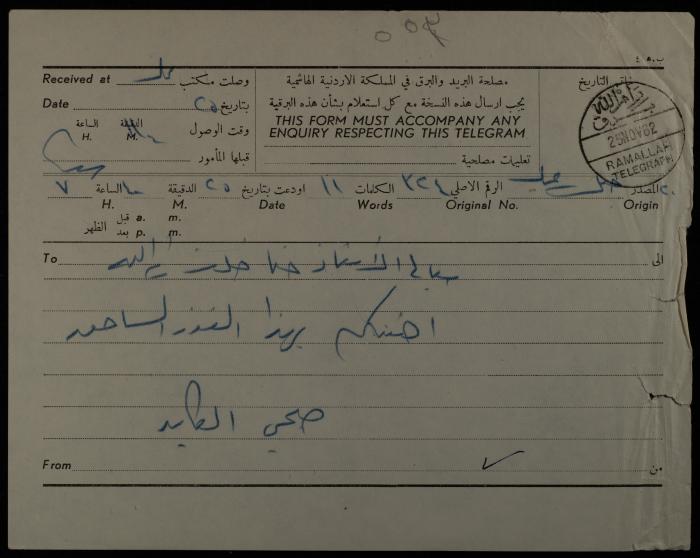 ٥٥٣
ب.٥.٤
Received at وصلت مكتب
مصلحة البريد والبرق في المملكة الاردنية الهاشمية
التاريخ
Date بتاريخ ٢٥
يجب ارسال هذه النسخة مع كل استعلام بشأن هذه البرقية
الساعة الدقيقة وقت الوصول
H. M.
THIS FORM MUST ACCOMPANY ANY
ENQUIRY RESPECTING THIS TELEGRAM
رام الله
25 NOV 62
RAMALLAH
TELEGRAPH
قبلها المأمور
تعليمات مصلحية
المصدر الرقم الاصلي الكلمات ١١ اودعت بتاريخ ٢٥ الدقيقة الساعة ٧
H. M. Date Words Original No. Origin
الظهر قبل a. m.
بعد p. m.
To الى
معالي الاستاذ حنا خلف رام الله
اهنئكم بهذا الفوز الساحق
صحي العايد
From من